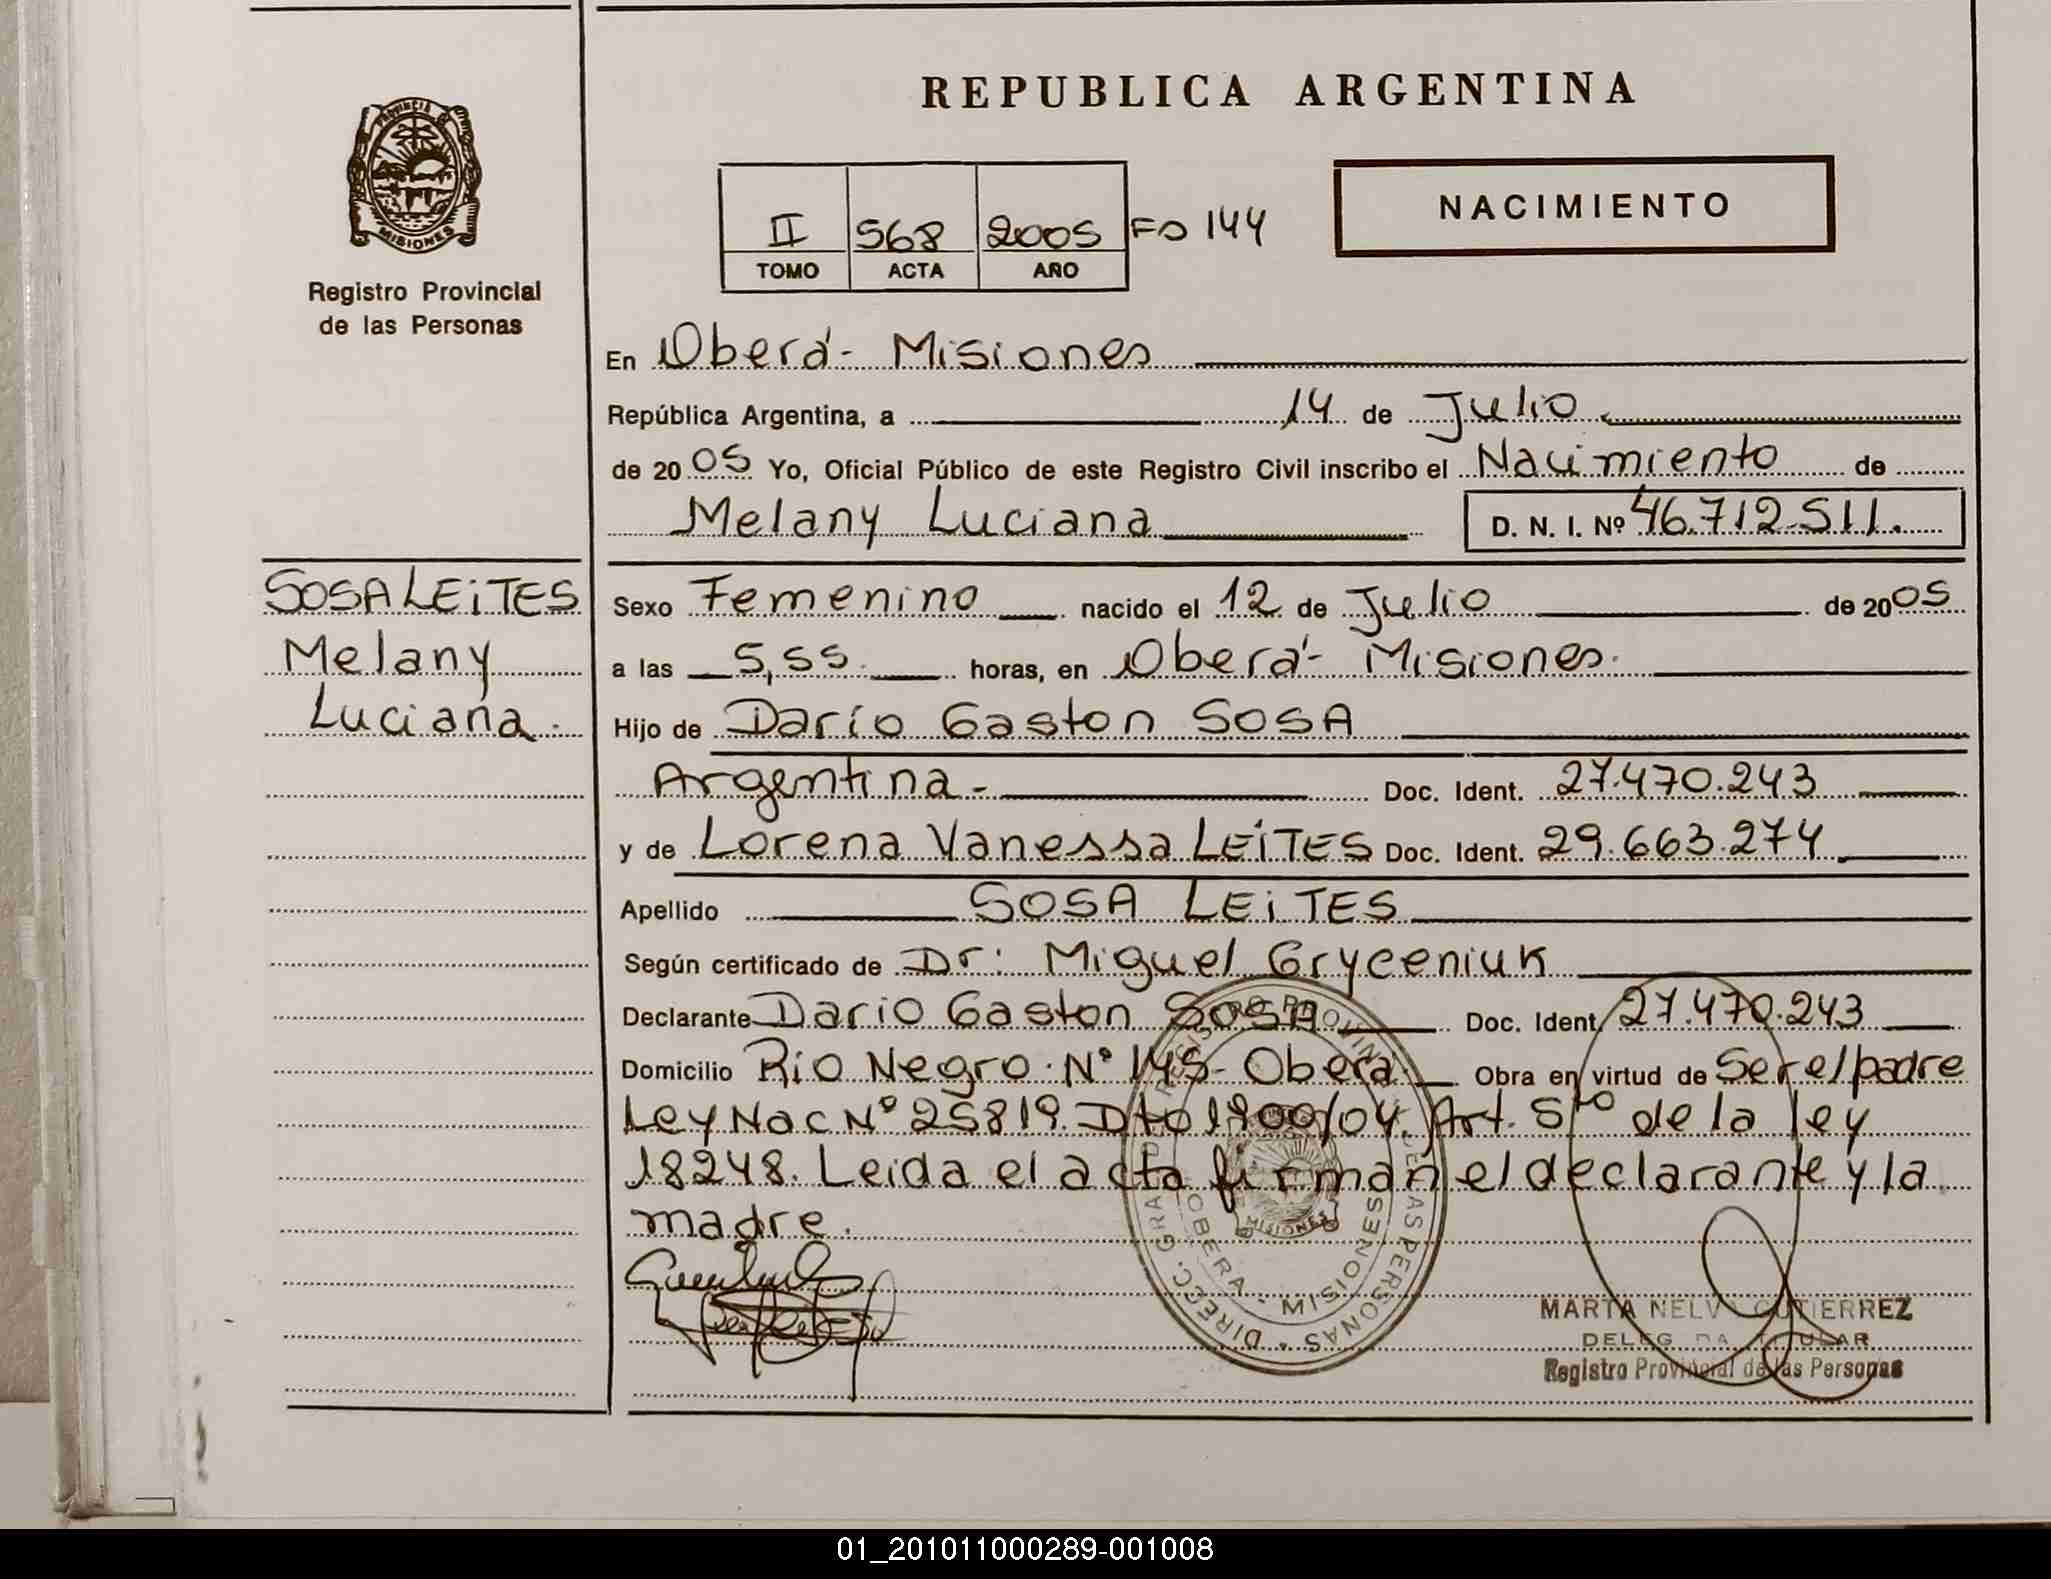 REPUBLICA ARGENTINA
PROVINCIA DE
MISIONES
Registro Provincial
de las Personas
NACIMIENTO
II 568 2005 Fo 144
TOMO ACTA AÑO
En Oberá- Misiones
República Argentina, a 14 de Julio
de 2005 Yo, Oficial Público de este Registro Civil inscribo el Nacimiento de
Melany Luciana D. N. I. Nº 46.712.511.
SOSA LEiTES
Melany
Luciana.-
Sexo Femenino nacido el 12 de Julio de 2005
a las 5,55 horas, en Oberá- Misiones.
Hijo de Darío Gaston SOSA
Argentina.- Doc. Ident. 27.470.243
y de Lorena Vanessa LEiTES Doc. Ident. 29.663.274
Apellido SOSA LEiTES
Según certificado de Dr: Miguel Gryceniuk
Declarante Dario Gaston SOSA Doc. Ident. 27.470.243
Domicilio Río Negro. Nº 145- Oberá Obra en virtud de Ser el padre
Ley Nac Nº 25819. Dto 1900/04. Art. 5to de la ley
18248. Leida el acta firman el declarante y la
madre.
DIRECC. GRAL. REGISTRO PROVINCIAL DE LAS PERSONAS
OBERA - MISIONES
MISIONES
MARTA NELVI GUTIERREZ
DELEGADA TITULAR
Registro Provincial de las Personas
01_201011000289-001008